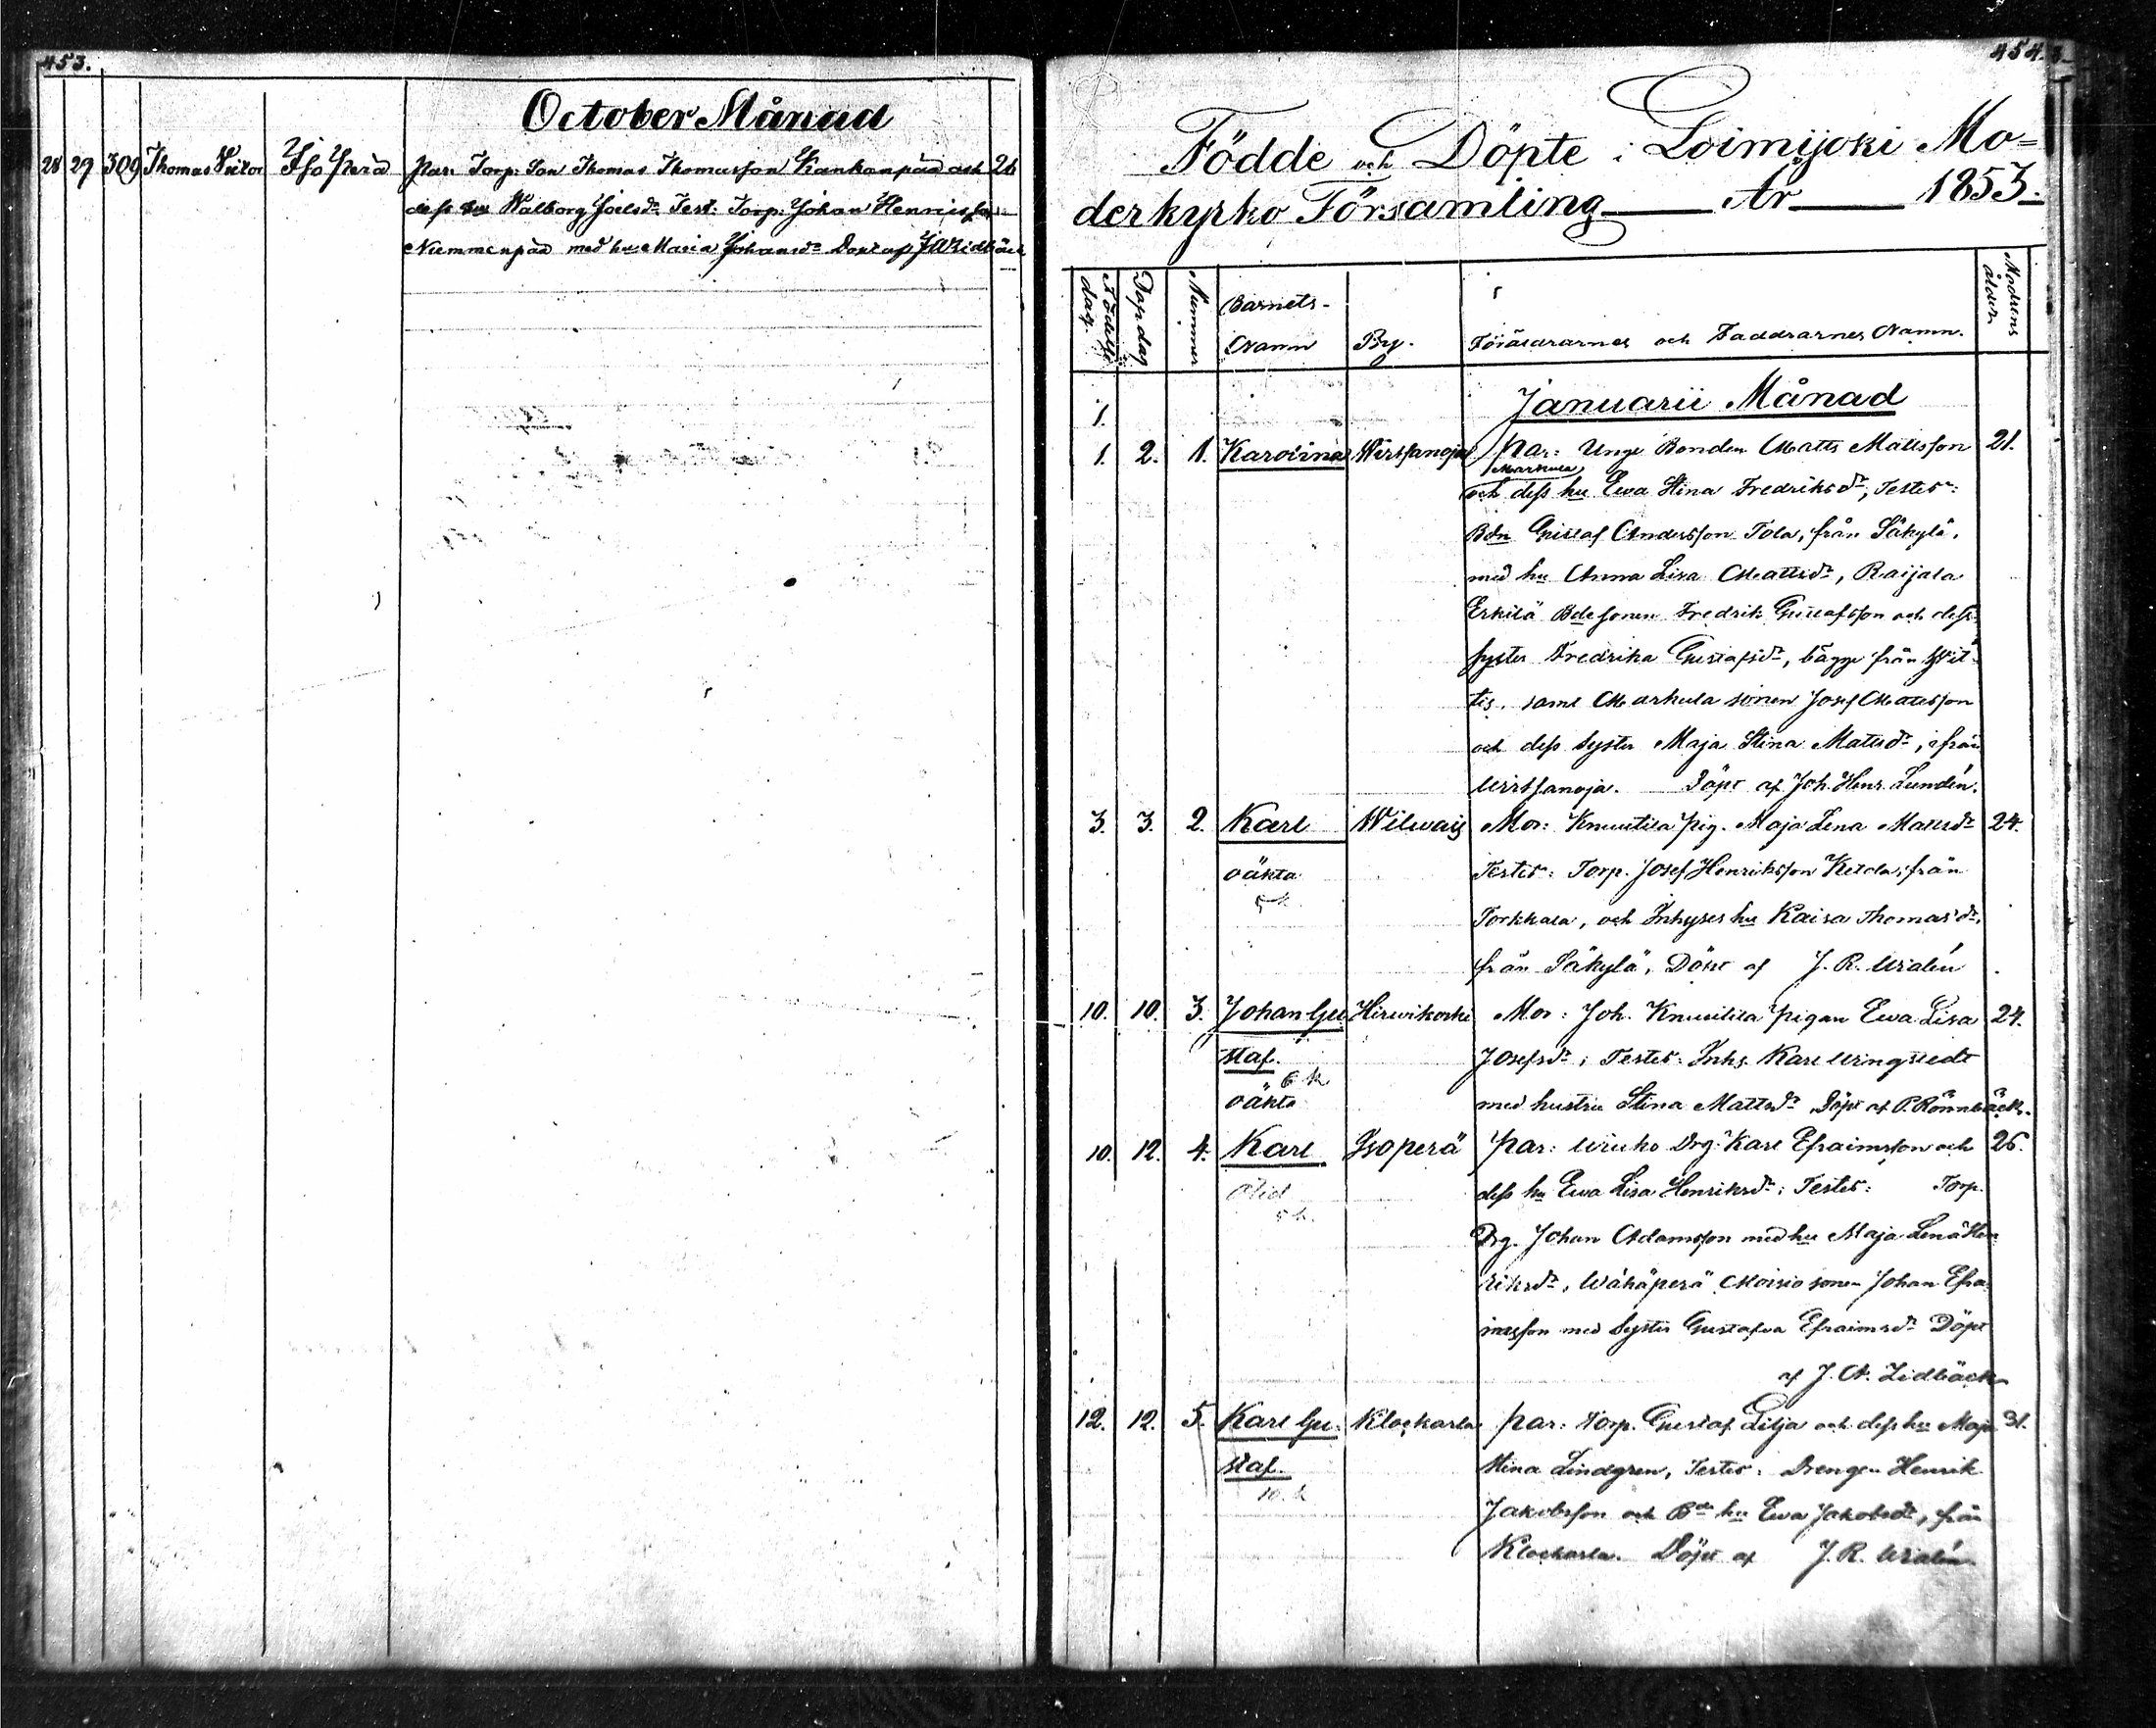 453.
October Månad
28 29 309 Thomas Victor Iso Perä Par: Torp. Son Thomas Thomasson Kankanpää och 26
dess hu Walborg Joelsdr Test: Torp: Johan Henricsson
Niemmenpää med hu Maria Johansdr Döpt af J A Zidbäck
454.
Födde och Döpte i Loimijoki Mo=
derkyrko Församling År 1853.
Födelse dag. Dop dag Nummer Barnets Namn By. Föräldrarnes och Faddrarnes Namn. Modrens ålder
Januarii Månad
1.
1. 2. 1. Karolina Wirtsanoja Par: Unge Bonden Matts Mattsson 21.
Markula
och dess hu Ewa Stina Fredriksdr, Testes:
Bdn Gustaf Andersson Tola, från Säkylä,
med hu Anna Lisa Mattsdr, Raijala
Erkilä Bdesonen Fredrik Gustafsson och dess
syster Fredrika Gustafsdr, bägge från Wit-
tis, samt Markula sonen Josef Mattsson
och dess syster Maja Stina Mattsdr, ifrån
Wirtsanoja. Döpt af Joh. Henr. Lundén.
3. 3. 2. Karl Wilwais Mor: Knuutila pig. Maja Lena Mattsdr 24.
oäkta Testes: Torp. Josef Henriksson Ketola, från
Torkkala, och Inhyses hu Kaisa Thomasdr,
från Säkylä, Döpt af J. R. Widlén
10. 10. 3. Johan Gu Hirwikoski Mor: Joh. Knuutila pigan Ewa Lisa 24.
staf. Josefsdr; Testes: Inhs Karl Wingstedt
6 k
oäkta med hustru Stina Mattsdr Döpt af P. Rönnbäck.
10. 12. 4. Karl Isoperä Par: Wucko Drg. Karl Efraimsson och 26.
dess hu Ewa Lisa Henriksdr; Testes: Torp.
Drg. Johan Adamsson med hu Maja Lena Hen
riksdr, Wähäperä Moisio sonen Johan Efra
imsson med syster Gustafva Efraimsdr Döpt
af J. A. Zidbäck
12. 12. 5. Karl Gu- Klockarla Par: Torp. Gustaf Lilja och dess hu Maja 31.
staf. Stina Lindgren, Testes: Drengen Henrik
Jakobsson och Bde hu Ewa Jakobsdr, från
Klockarla. Döpt af J. R. Widlén